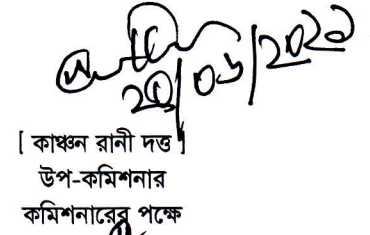 ২০/০৬/২০২১
[ কাঞ্চন রানী দত্ত ]
উপ-কমিশনার
কমিশনারের পক্ষে